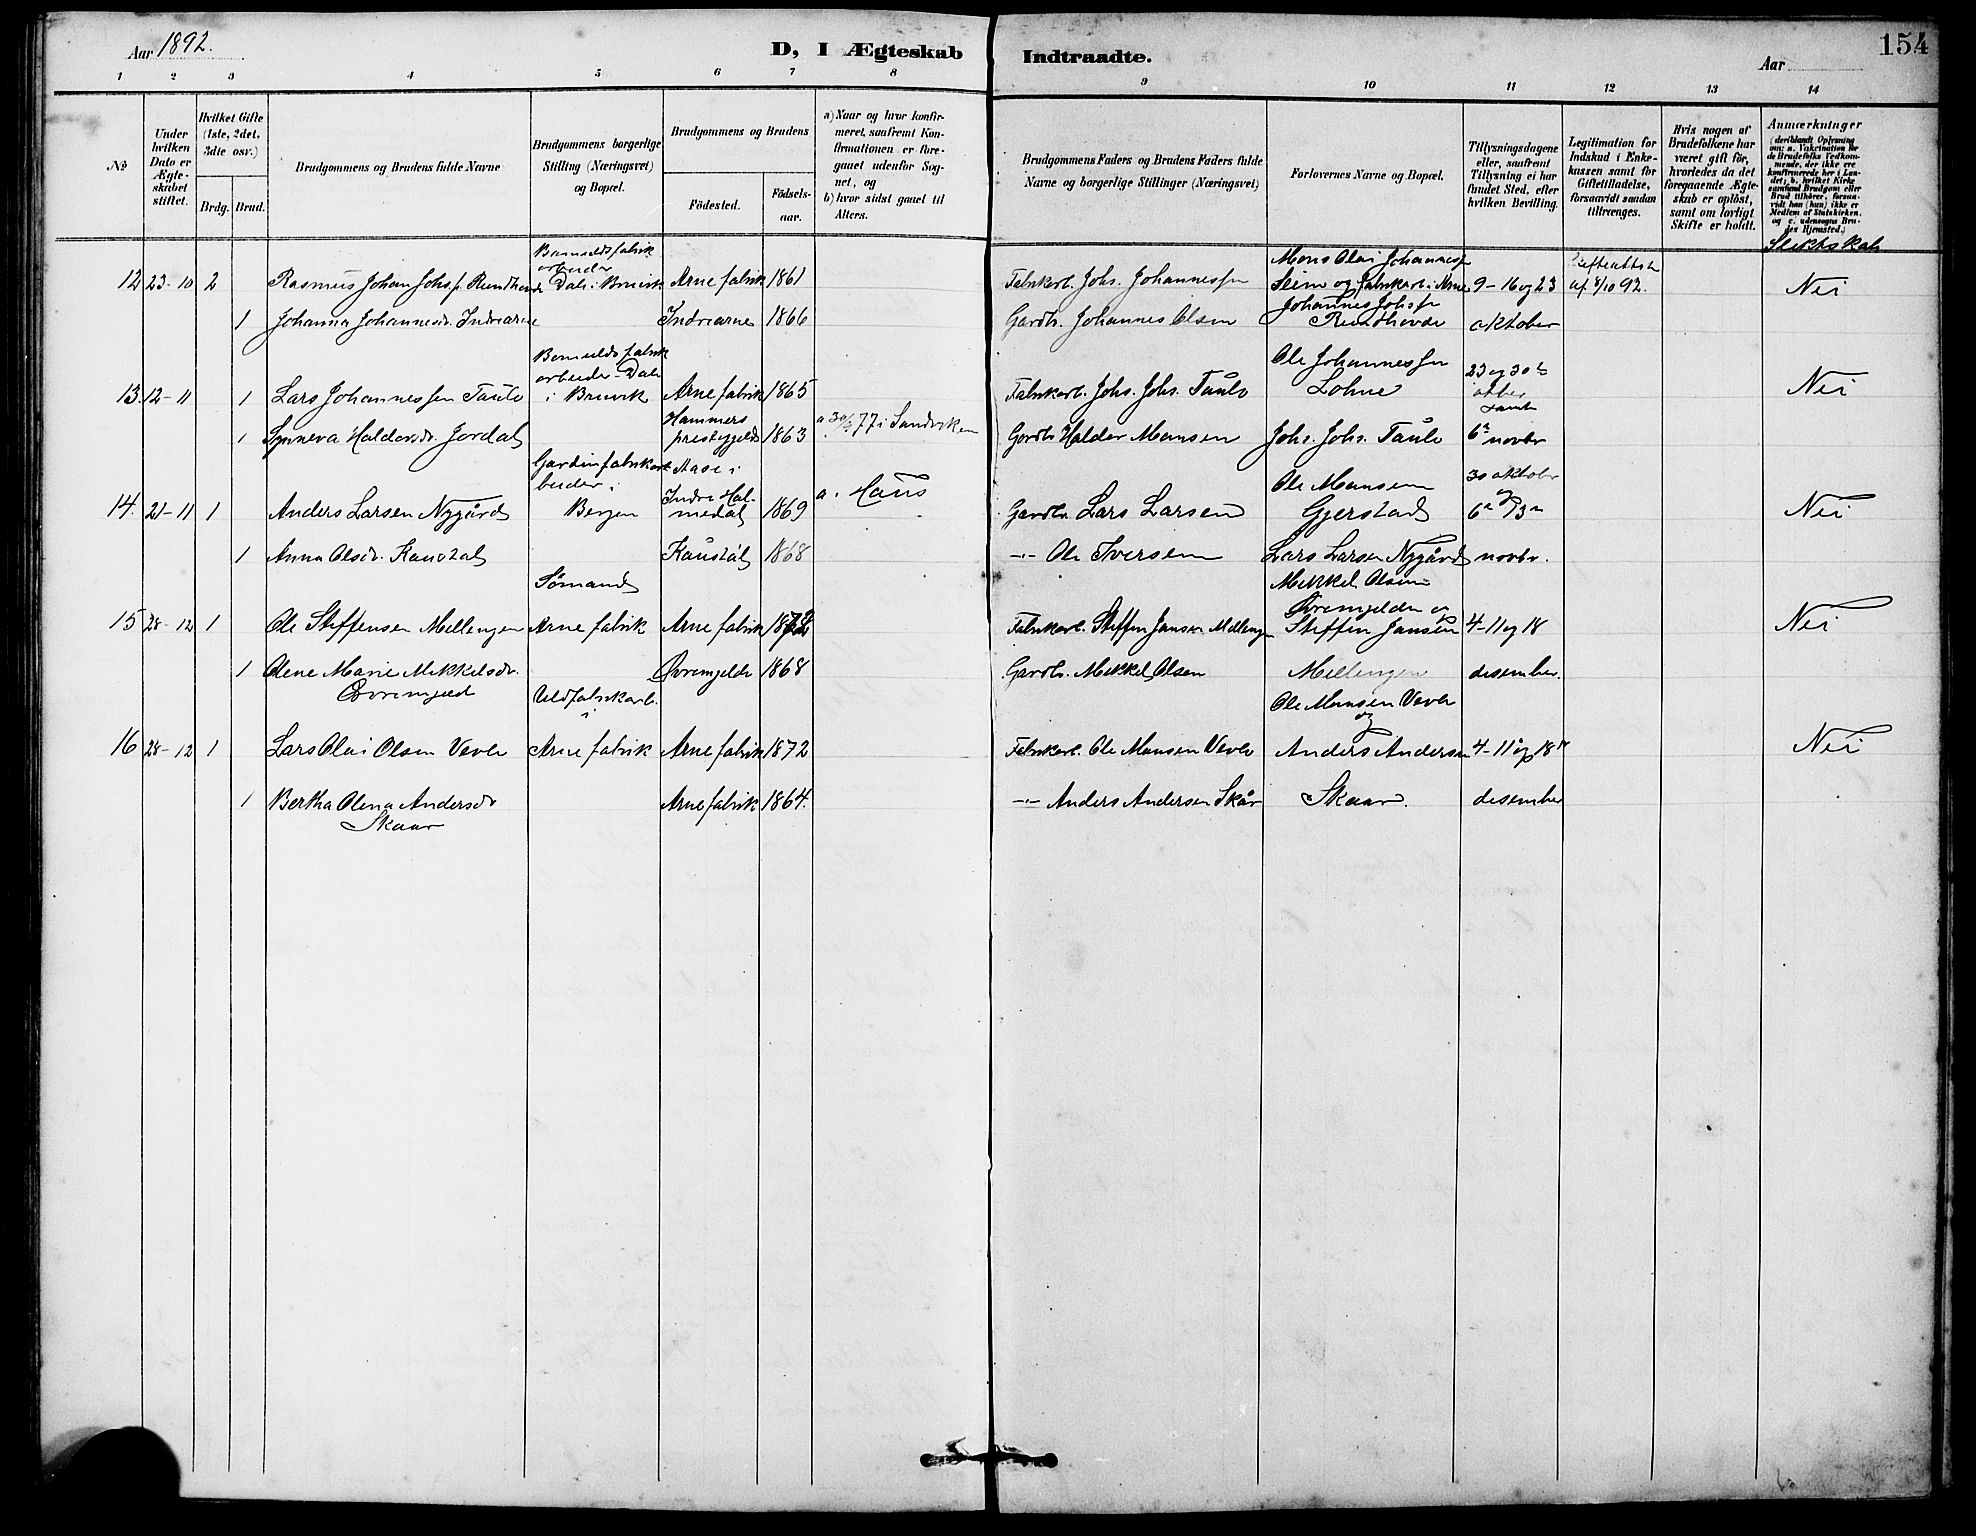 Aar 1892.
D, I Ægteskab
Indtraadte.
Aar
154
1 2 3 4 5 6 7 8 9 10 11 12 13 14
No
Under hvilken Dato er Ægteskabet stiftet.
Hvilket Gifte (1ste, 2det, 3die osv.)
Brdg. Brud.
Brudgommens og Brudens fulde Navne
Brudgommens borgerlige Stilling (Næringsvei) og Bopæl.
Brudgommens og Brudens
Födested.
Födselsaar.
a) Naar og hvor konfirmeret, saafremt Konfirmationen er foregaaet udenfor Sognet, og
b) hvor sidst gaaet til Alters.
Brudgommens Faders og Brudens Faders fulde Navne og borgerlige Stillinger (Næringsvei)
Forlovernes Navne og Bopæl.
Tillysningsdagene eller, saafremt Tillysning ei har fundet Sted, efter hvilken Bevilling.
Legitimation for Indskud i Enkekassen samt for Giftetilladelse, forsaavidt saadan tiltrænges.
Hvis nogen af Brudefolkene har været gift för, hvorledes da det foregaaende Ægteskab er oplöst, samt om lovligt Skifte er holdt.
Anmærkninger
(deriblandt Oplysning om: a. Vakcination for de Brudefolks Vedkommende, der ikke ere konfirmerede her i Landet; b. hvilket Kirkesamfund Brudgom eller Brud tilhörer, forsaavidt han (hun) ikke er Medlem af Statskirken, og c. udensogns Brudes Hjemsted.)
Slektskab
Bomuldsfabrik
arbeider
12 23-10 2 Rasmus Johan Johs.s. Rundhovde Dale i Bruvik Arne fabrik 1861
Fabrikarb. Johs. Johannessen
Mons Olai Johannessen
Seim og fabrikarb. i Arne
9-16 og 23
af 8/10 92.
Nei
1 Johanna Johannesdr. Indrearne Indrearne 1866
Gardbr. Johannes Olsen
Johannes Johs.sen
Rundhovde
oktober
Bomuldsfabrik
arbeider Dale
13. 12-11 1 Lars Johannessen Taule i Bruvik Arne fabrik 1865
Fabrikarb. Johs. Johs. Taule
Ole Johannessen
Lohne
23 og 30te
oktber
samt
Nei
1 Synneva Haldorsdr. Jordal
Hammers
prestegjeld 1863
a. 30/9 77 i Sandviken
Gardbr. Haldor Monsen
Johs. Johs. Taule
6te novbr
Gardinfabrikarbeider i
Aase i
14. 21-11 1 Anders Larsen Nygård Bergen
Indre Holmedal 1869
a. Haus
Gardbr. Lars Larsen
Ole Monsen
Gjerstad
30 oktober
6te og 13de
Nei
1 Anna Olsdr. Kaustal Kaustål 1868
-"- Ole Iversen
Lars Larsen Nygård
novbr.
Sömand
15 28-12 1 Ole Steffensen Mellengen Arne fabrik Arne fabrik 1872
Fabrikarb. Steffen Jansen Mellengen
Mikkel Olsen
Øvremjelde og
Steffen Jansen
4-11 og 18
Nei
1 Olene Marie Mikkelsdr.
Øvremjeld
Øvremjelde 1868
Gardbr. Mikkel Olsen
Mellengen
desember.
Uldfabrikarb.
i
16 28-12 1 Lars Olai Olsen Vevle Arne fabrik Arne fabrik 1872
Fabrikarb. Ole Monsen Vevle
Ole Monsen Vevle
og
Anders Andersen
4-11 og 18de
Nei
1 Bertha Olena Andersdr
Skaar
Arne fabrik 1864.
-"- Anders Andersen Skår
Skaar.
desember